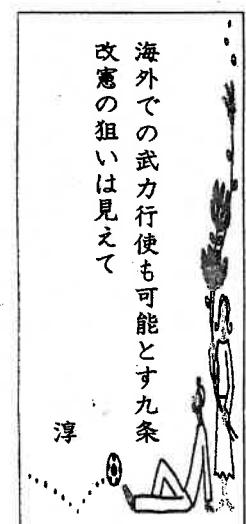 海外での武力行使も可能とす九条
改憲の狙いは見えて
淳